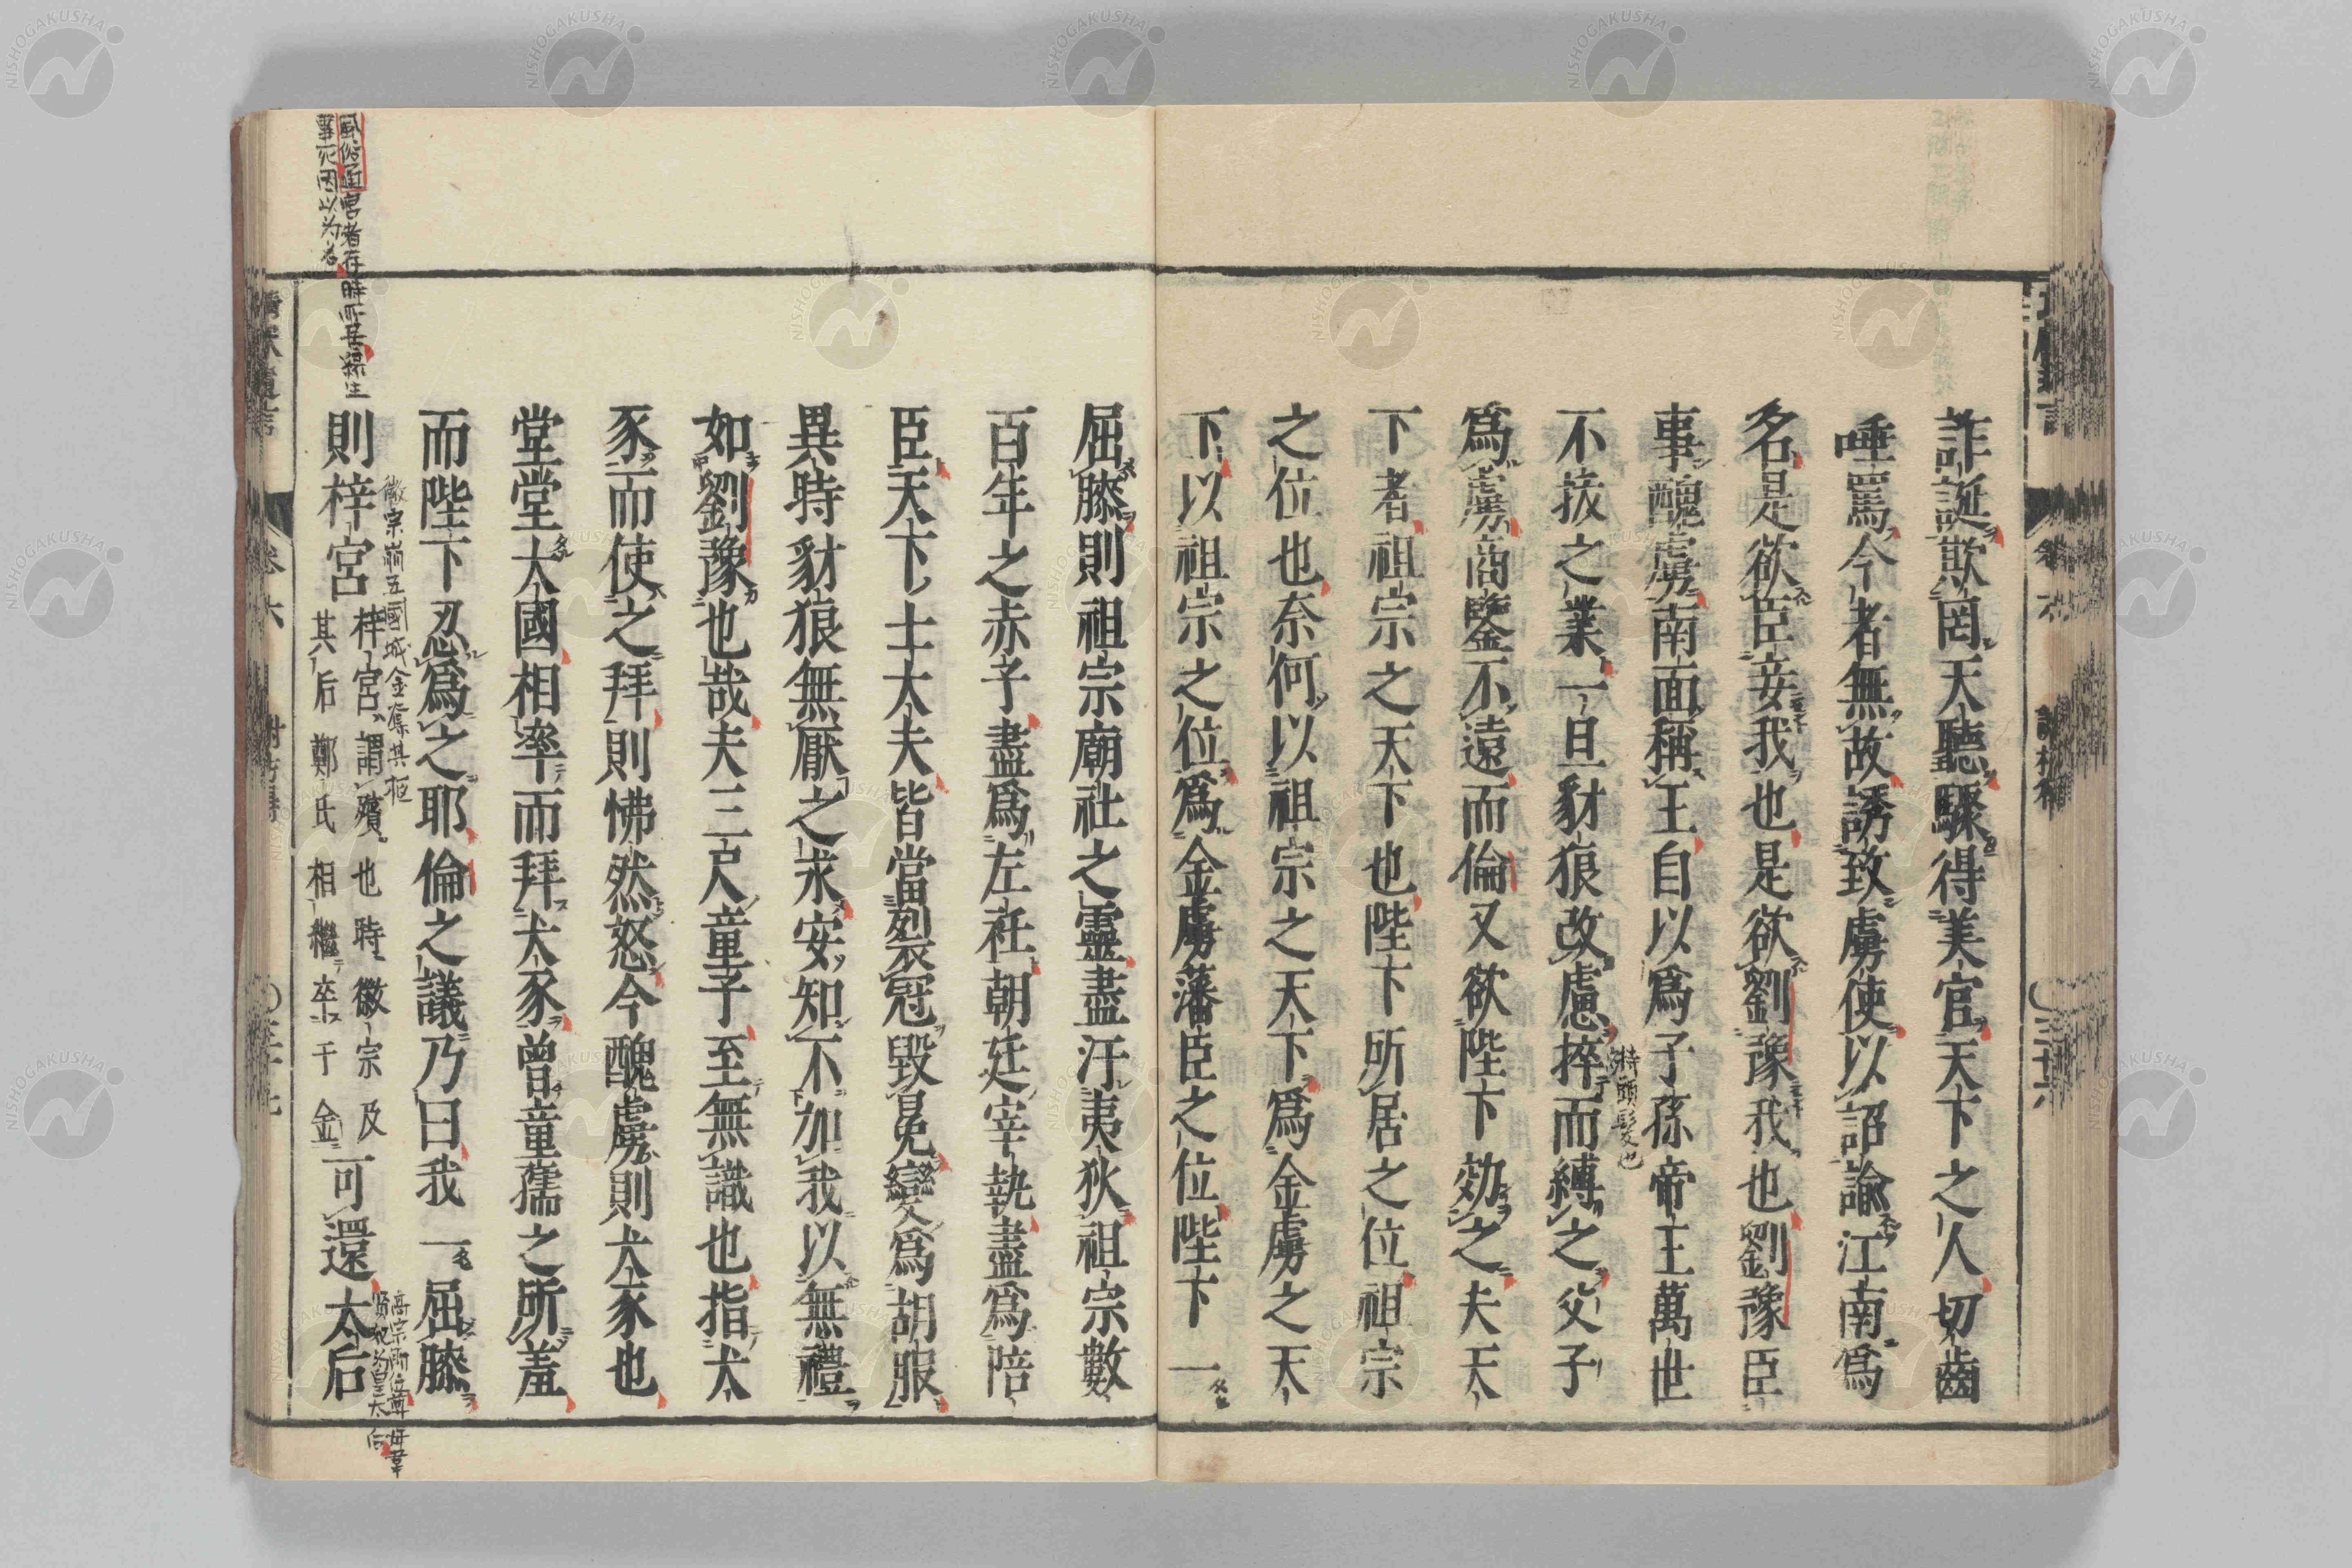 詐誕欺罔天聽驟得美官天下之人切齒
唾罵今者無故誘致虜使以詔諭江南爲
名是欲臣妾我也是欲劉豫我也劉豫臣
事醜虜南面稱王自以爲子孫帝王萬世
不拔之業一旦豺狼改慮捽而縛之父子
持頭髮也
爲虜商鑒不遠而倫又欲陛下効之夫天
下者祖宗之天下也陛下所居之位祖宗
之位也奈何以祖宗之天下爲金虜之天
下以祖宗之位爲金虜藩臣之位陛下一
屈膝則祖宗廟社之靈盡汙夷狄祖宗數
百年之赤子盡爲左衽朝廷宰執盡爲陪
臣天下士大夫皆當裂冠毀冕變爲胡服
異時豺狼無厭之求安知不加我以無禮
如劉豫也哉夫三尺童子至無識也指犬
豕而使之拜則怫然怒今醜虜則犬豕也
堂堂大國相率而拜犬豕曾童孺之所羞
而陛下忍爲之耶倫之議乃曰我一屈膝
徽宗崩五國城金奪其柩
則梓宮梓宮謂殯也時徽宗及其后鄭氏相繼卒于金可還太后
風俗通宮者存時所居緣生
事死因以为名
卷六
NISHOGAKUSHA